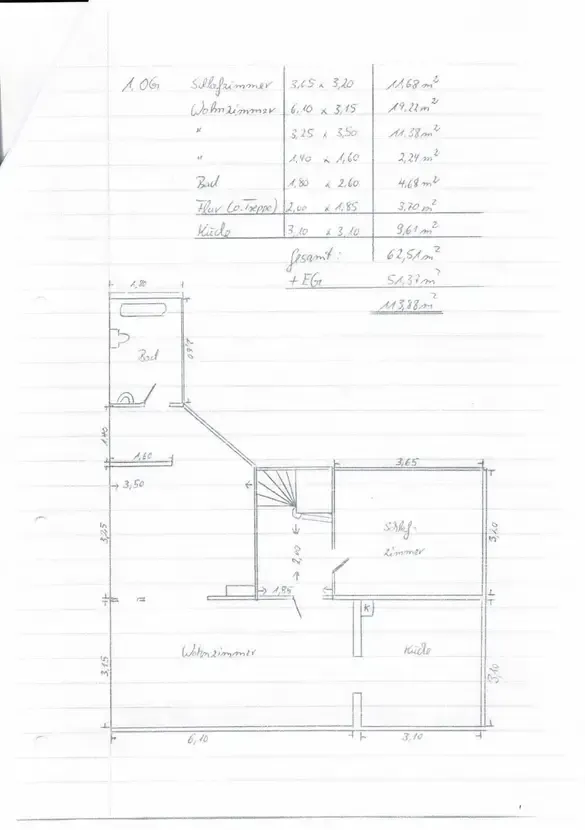 1. OG Schlafzimmer 3,65 x 3,20 11,68 m²
Wohnzimmer 6,10 x 3,15 19,22 m²
" 3,25 x 3,50 11,38 m²
" 1,40 x 1,60 2,24 m²
Bad 1,80 x 2,60 4,68 m²
Flur (o. Treppe) 2,00 x 1,85 3,70 m²
Küche 3,10 x 3,10 9,61 m²
Gesamt: 62,51 m²
+ EG 51,37 m²
113,88 m²
1,80
Bad
2,60
1,40
1,60
3,65
3,50
Schlaf-
zimmer
3,20
3,25
2,00
1,85
K
Wohnzimmer
Küche
3,15
3,10
6,10
3,10